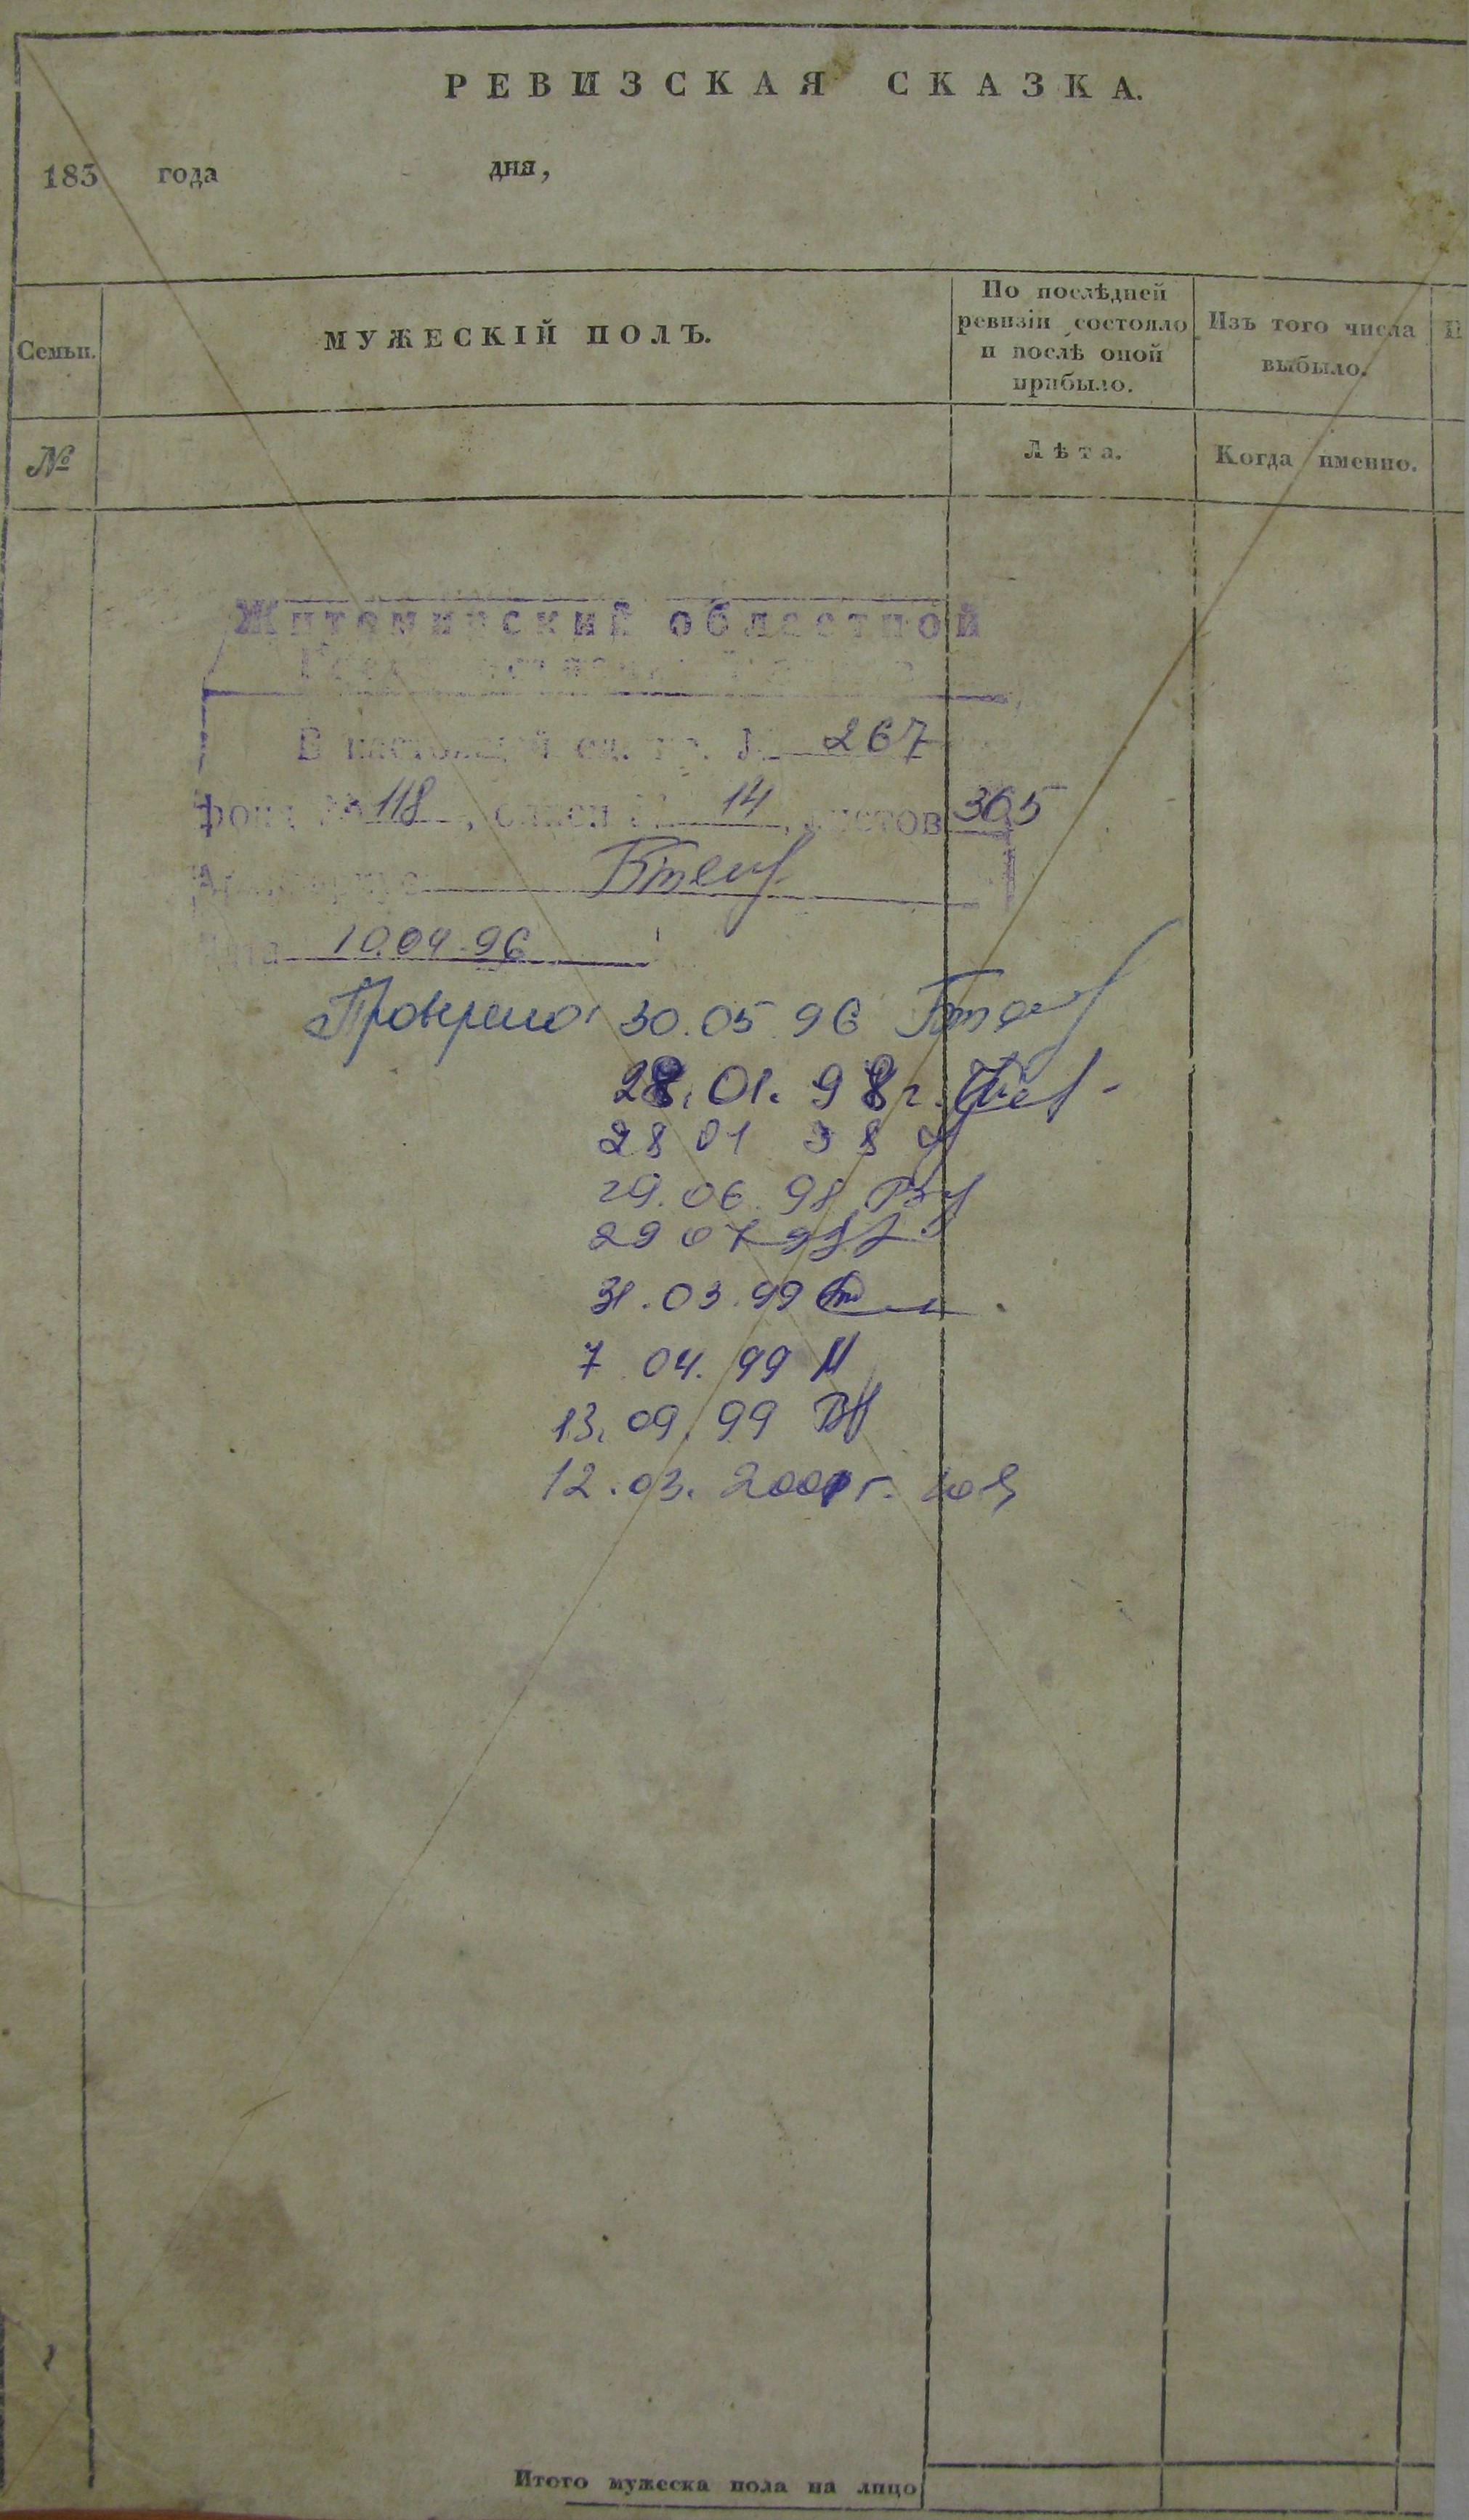 РЕВИЗСКАЯ СКАЗКА.
183 года дня,
Семьи.
МУЖЕСКІЙ ПОЛЪ.
По послѣдней
ревизіи состояло
и послѣ оной
прибыло.
Изъ того числа
выбыло.
№
Лѣта.
Когда именно.
Житомирский областной
В настоящей ед. хр. № 267
фонд № 118, описи № 14, листов 365
10.04.96
Проверено: 30.05.96
28.01.98 г.
28 01 98
29.06.98
29 07 98
31.03.99
7 04.99
13.09.99
12.03.2001 г.
Итого мужеска пола на лицо